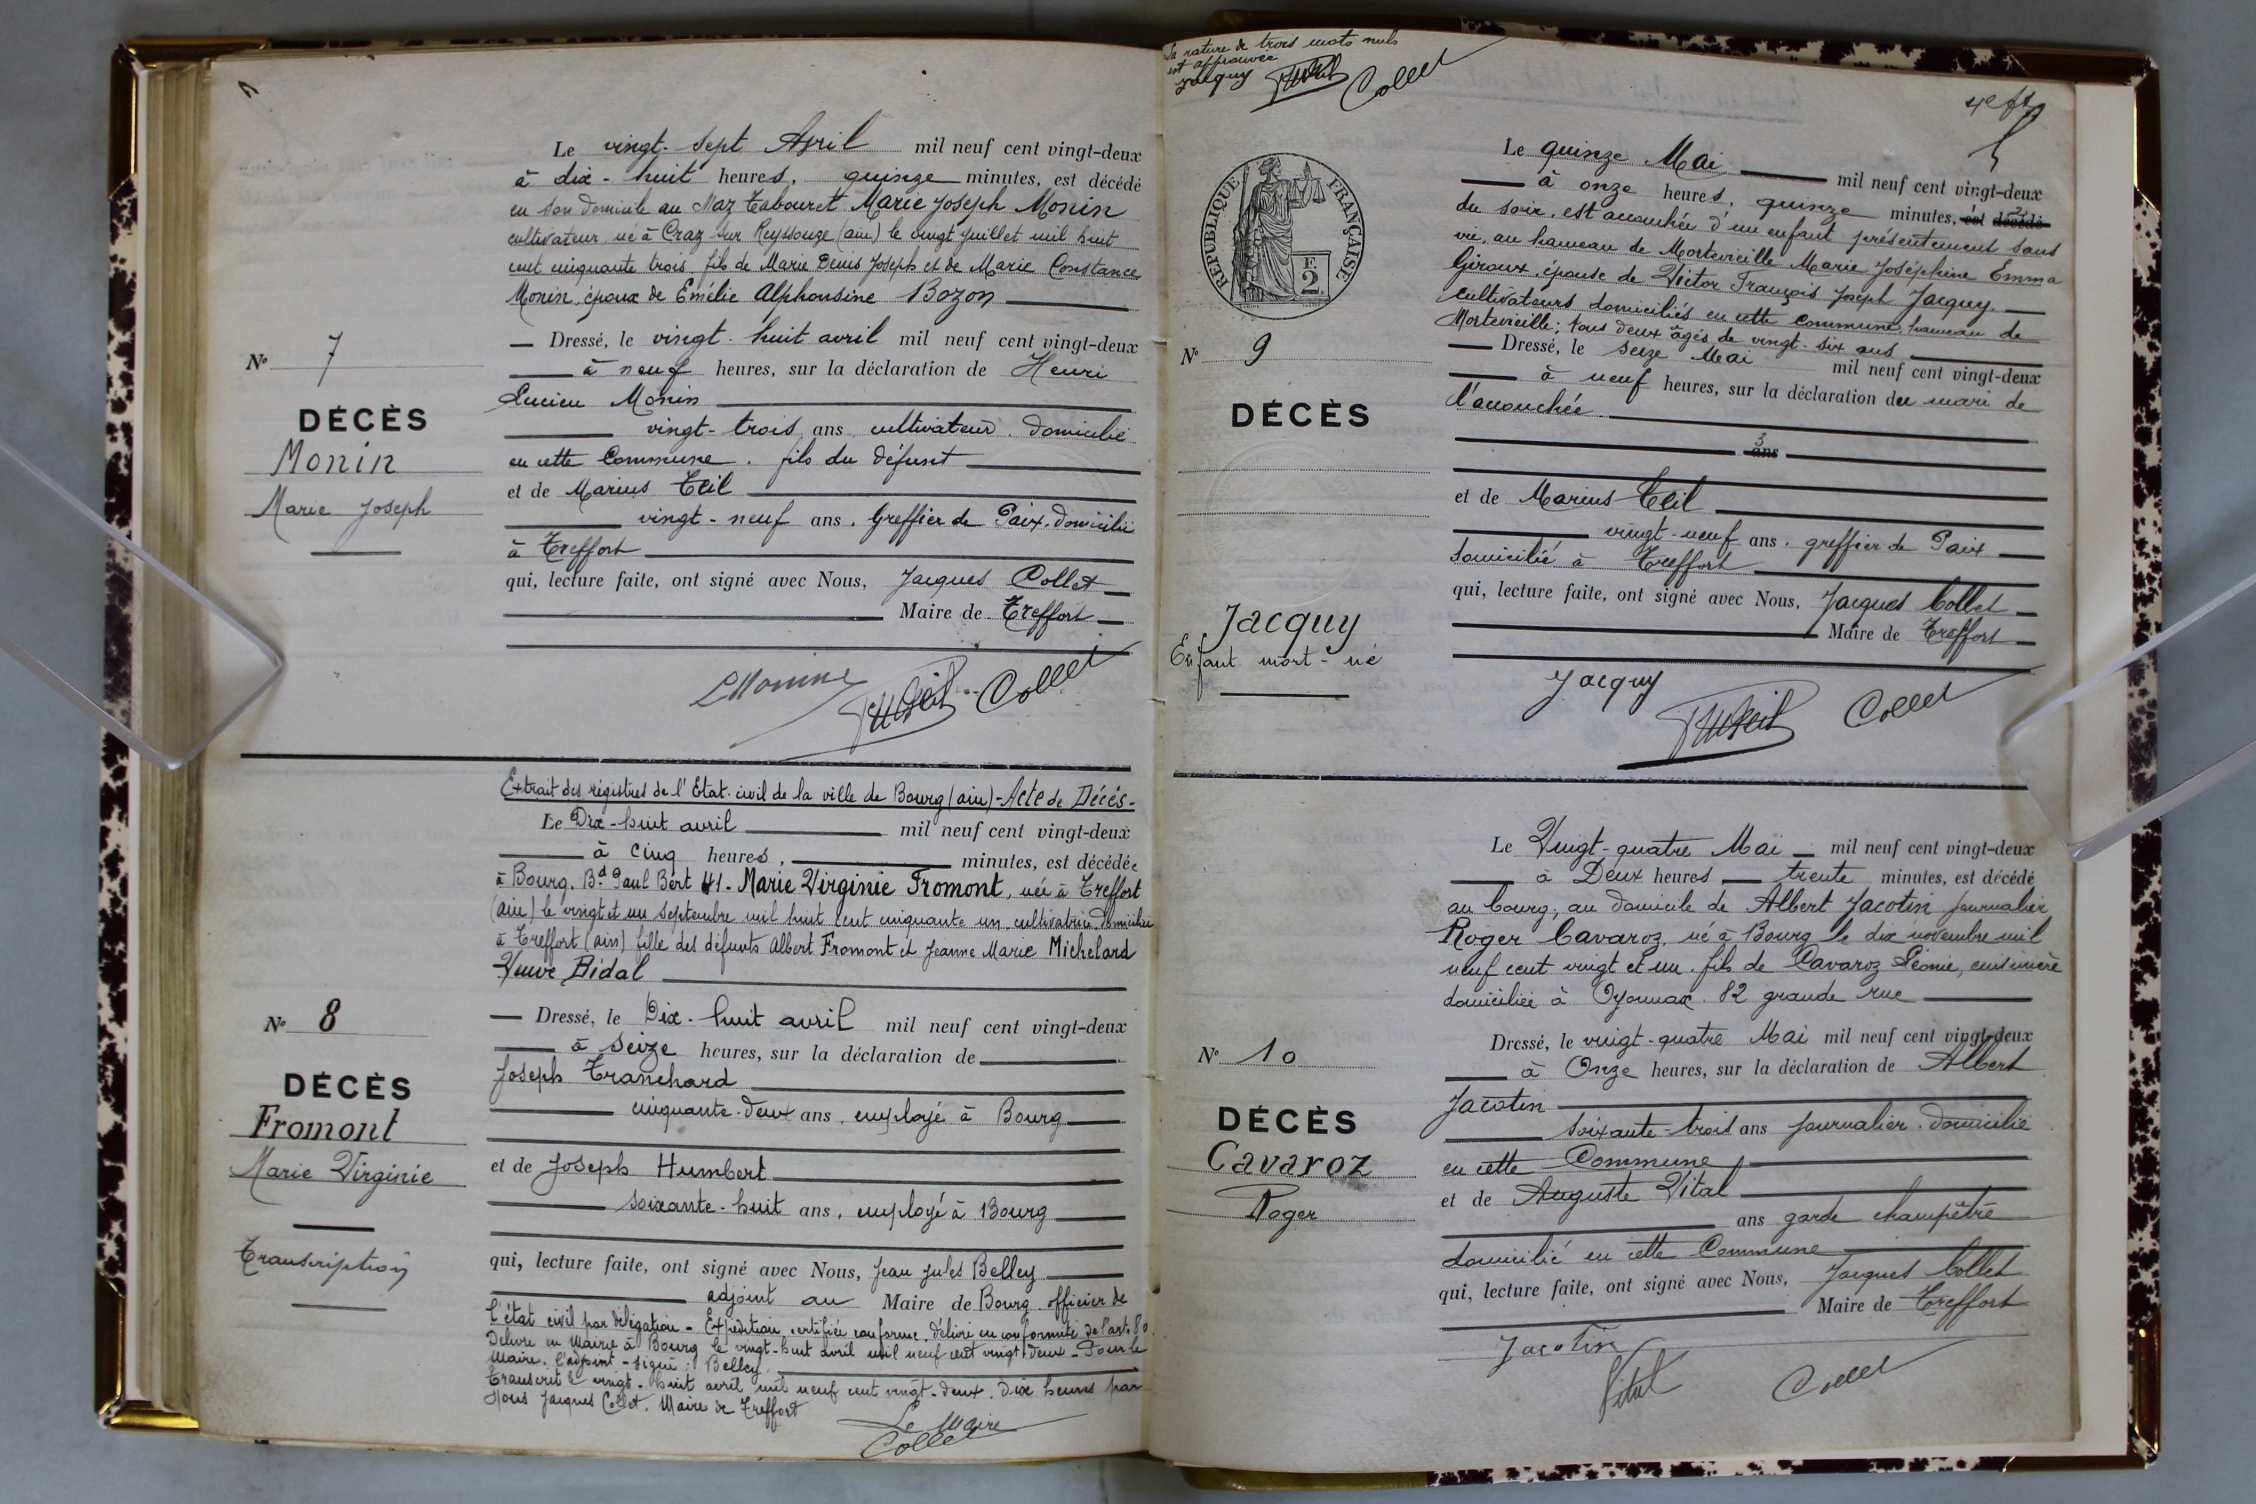 Le vingt-sept Avril mil neuf cent vingt-deux
à dix-huit heures, quinze minutes, est décédé
en son domicile au Maz Tabouret Marie Joseph Monin
cultivateur né à Craz sur Reyssouze (ain) le vingt juillet mil huit
cent cinquante trois, fils de Marie Denis Joseph et de Marie Constance
Monin, époux de Emélie Alphonsine Bozon
Dressé, le vingt-huit avril mil neuf cent vingt-deux
à neuf heures, sur la déclaration de Henri
Lucien Monin
vingt-trois ans, cultivateur, domicilié
en cette Commune, fils du défunt
et de Marius Teil
vingt-neuf ans, Greffier de Paix, domicilié
à Treffort
qui, lecture faite, ont signé avec Nous, Jacques Collet
Maire de Treffort
Collet
N° 7
DÉCÈS
Monin
Marie Joseph
Extrait des régistres de l'Etat-civil de la ville de Bourg (ain) - Acte de Décès -
Le Dix-huit avril mil neuf cent vingt-deux
à cinq heures, minutes, est décédée
à Bourg, Bd Paul Bert 41 - Marie Virginie Fromont, née à Treffort
(ain) le vingt et un septembre mil huit cent cinquante un, cultivatrice, domiciliée
à Treffort (ain) fille des défunts Albert Fromont et Jeanne Marie Michelard
Veuve Bidal
Dressé, le Dix-huit avril mil neuf cent vingt-deux
à seize heures, sur la déclaration de
Joseph Tranchard
cinquante-deux ans, employé à Bourg
et de Joseph Humbert
soixante-huit ans, employé à Bourg
qui, lecture faite, ont signé avec Nous, Jean Jules Belley
adjoint au Maire de Bourg officier de
l'état civil par délégation - Expédition certifiée conforme, délivré en conformité de l'art. 80.
Délivré en Mairie à Bourg le vingt-huit avril mil neuf cent vingt deux - Pour le
Maire, l'adjoint - signé: Belley.
Transcrit le vingt-huit avril mil neuf cent vingt-deux, dix heures par
Nous Jacques Collet, Maire de Treffort
Le Maire
Collet
N° 8
DÉCÈS
Fromont
Marie Virginie
Transcription
La rature de trois mots nuls
est approuvée
Jacquy Collet
4e ft
RÉPUBLIQUE FRANÇAISE
F.
2.
Le quinze Mai mil neuf cent vingt-deux
à onze heures, quinze minutes, est décédé
du soir, est accouchée d'un enfant présentement sans
vie, au hameau de Mortevieille Marie Joséphine Emma
Giroux, épouse de Victor François Joseph Jacquy.
cultivateurs domiciliés en cette commune, hameau de
Mortevieille; tous deux âgés de vingt-six ans
Dressé, le seize Mai mil neuf cent vingt-deux
à neuf heures, sur la déclaration du mari de
l'accouchée
3
ans
et de Marius Teil
vingt-neuf ans, greffier de Paix
domicilié à Treffort
qui, lecture faite, ont signé avec Nous, Jacques Collet
Maire de Treffort
Jacquy Collet
N° 9
DÉCÈS
Jacquy
Enfant mort-né
Le Vingt-quatre Mai mil neuf cent vingt-deux
à Deux heures trente minutes, est décédé
au bourg, au domicile de Albert Jacotin journalier
Roger Cavaroz, né à Bourg le dix novembre mil
neuf cent vingt et un, fils de Cavaroz Léonie, cuisinière
domiciliée à Oyonnax, 82 grande rue
Dressé, le vingt-quatre Mai mil neuf cent vingt-deux
à Onze heures, sur la déclaration de Albert
Jacotin
soixante-trois ans journalier, domicilié
en cette Commune
et de Auguste Vital
ans garde champêtre
domicilié en cette Commune
qui, lecture faite, ont signé avec Nous, Jacques Collet
Maire de Treffort
Jacotin
Vital Collet
N° 10
DÉCÈS
Cavaroz
Roger